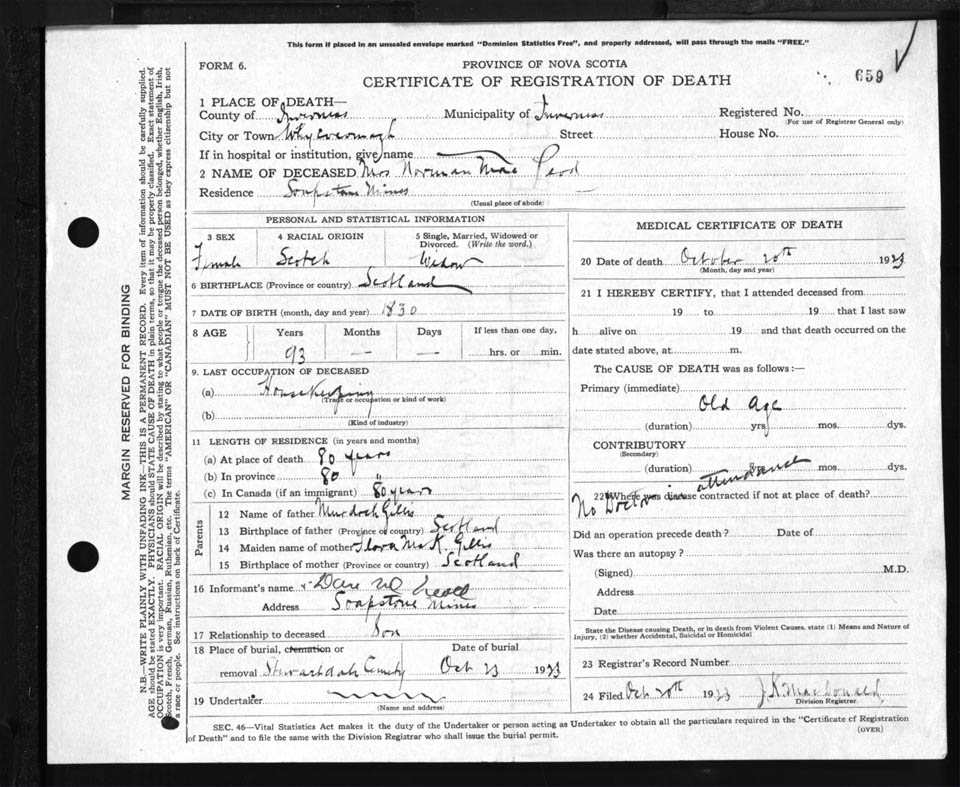 This form if placed in an unsealed envelope marked "Dominion Statistics Free", and properly addressed, will pass through the mails "FREE."
FORM 6.
PROVINCE OF NOVA SCOTIA
CERTIFICATE OF REGISTRATION OF DEATH
659
1 PLACE OF DEATH—
County of Inverness Municipality of Inverness Registered No.
(For use of Registrar General only)
City or Town Whycocomagh Street House No.
If in hospital or institution, give name
2 NAME OF DECEASED Mrs Norman Mac Leod
Residence Soapstone Mines
(Usual place of abode)
PERSONAL AND STATISTICAL INFORMATION
3 SEX 4 RACIAL ORIGIN 5 Single, Married, Widowed or Divorced. (Write the word.)
Female Scotch Widow
6 BIRTHPLACE (Province or country) Scotland
7 DATE OF BIRTH (month, day and year) 1830
8 AGE Years Months Days If less than one day,
93 — — hrs. or min.
9. LAST OCCUPATION OF DECEASED
(a) Housekeeping
(Trade or occupation or kind of work)
(b)
(Kind of industry)
11 LENGTH OF RESIDENCE (in years and months)
(a) At place of death 80 years
(b) In province 80 "
(c) In Canada (if an immigrant) 80 years
Parents
12 Name of father Murdoch Gillis
13 Birthplace of father (Province or country) Scotland
14 Maiden name of mother Flora McK. Gillis
15 Birthplace of mother (Province or country) Scotland
16 Informant's name Dan
Address Soapstone Mines
17 Relationship to deceased Son
18 Place of burial, cremation or Date of burial
removal Oct 23 1923
19 Undertaker
(Name and address)
MEDICAL CERTIFICATE OF DEATH
20 Date of death October 20th 1923
(Month, day and year)
21 I HEREBY CERTIFY, that I attended deceased from
19 to 19 that I last saw
h alive on 19 and that death occurred on the
date stated above, at m.
The CAUSE OF DEATH was as follows:—
Primary (immediate)
Old Age
(duration) yrs. mos. dys.
CONTRIBUTORY
(Secondary)
(duration) yrs. mos. dys.
No Doctor in attendance
22 Where was disease contracted if not at place of death?
Did an operation precede death? Date of
Was there an autopsy?
(Signed) M.D.
Address
Date
State the Disease causing Death, or in death from Violent Causes, state (1) Means and Nature of
Injury, (2) whether Accidental, Suicidal or Homicidal
23 Registrar's Record Number
24 Filed Oct 20th 1923 J.K. MacDonald
Division Registrar.
SEC. 46—Vital Statistics Act makes it the duty of the Undertaker or person acting as Undertaker to obtain all the particulars required in the "Certificate of Registration
of Death" and to file the same with the Division Registrar who shall issue the burial permit.
(OVER)
MARGIN RESERVED FOR BINDING
N.B.—WRITE PLAINLY WITH UNFADING INK—THIS IS A PERMANENT RECORD. Every item of information should be carefully supplied.
AGE should be stated EXACTLY. PHYSICIANS should STATE CAUSE OF DEATH in plain terms, so that it may be properly classified. Exact statement of
OCCUPATION is very important. RACIAL ORIGIN will be described by stating to what people or tongue the deceased person belonged, whether English, Irish,
Scotch, French, German, Russian, Ruthenian, etc. The terms "AMERICAN" OR "CANADIAN" MUST NOT BE USED as they express citizenship but not
a race or people. See instructions on back of Certificate.